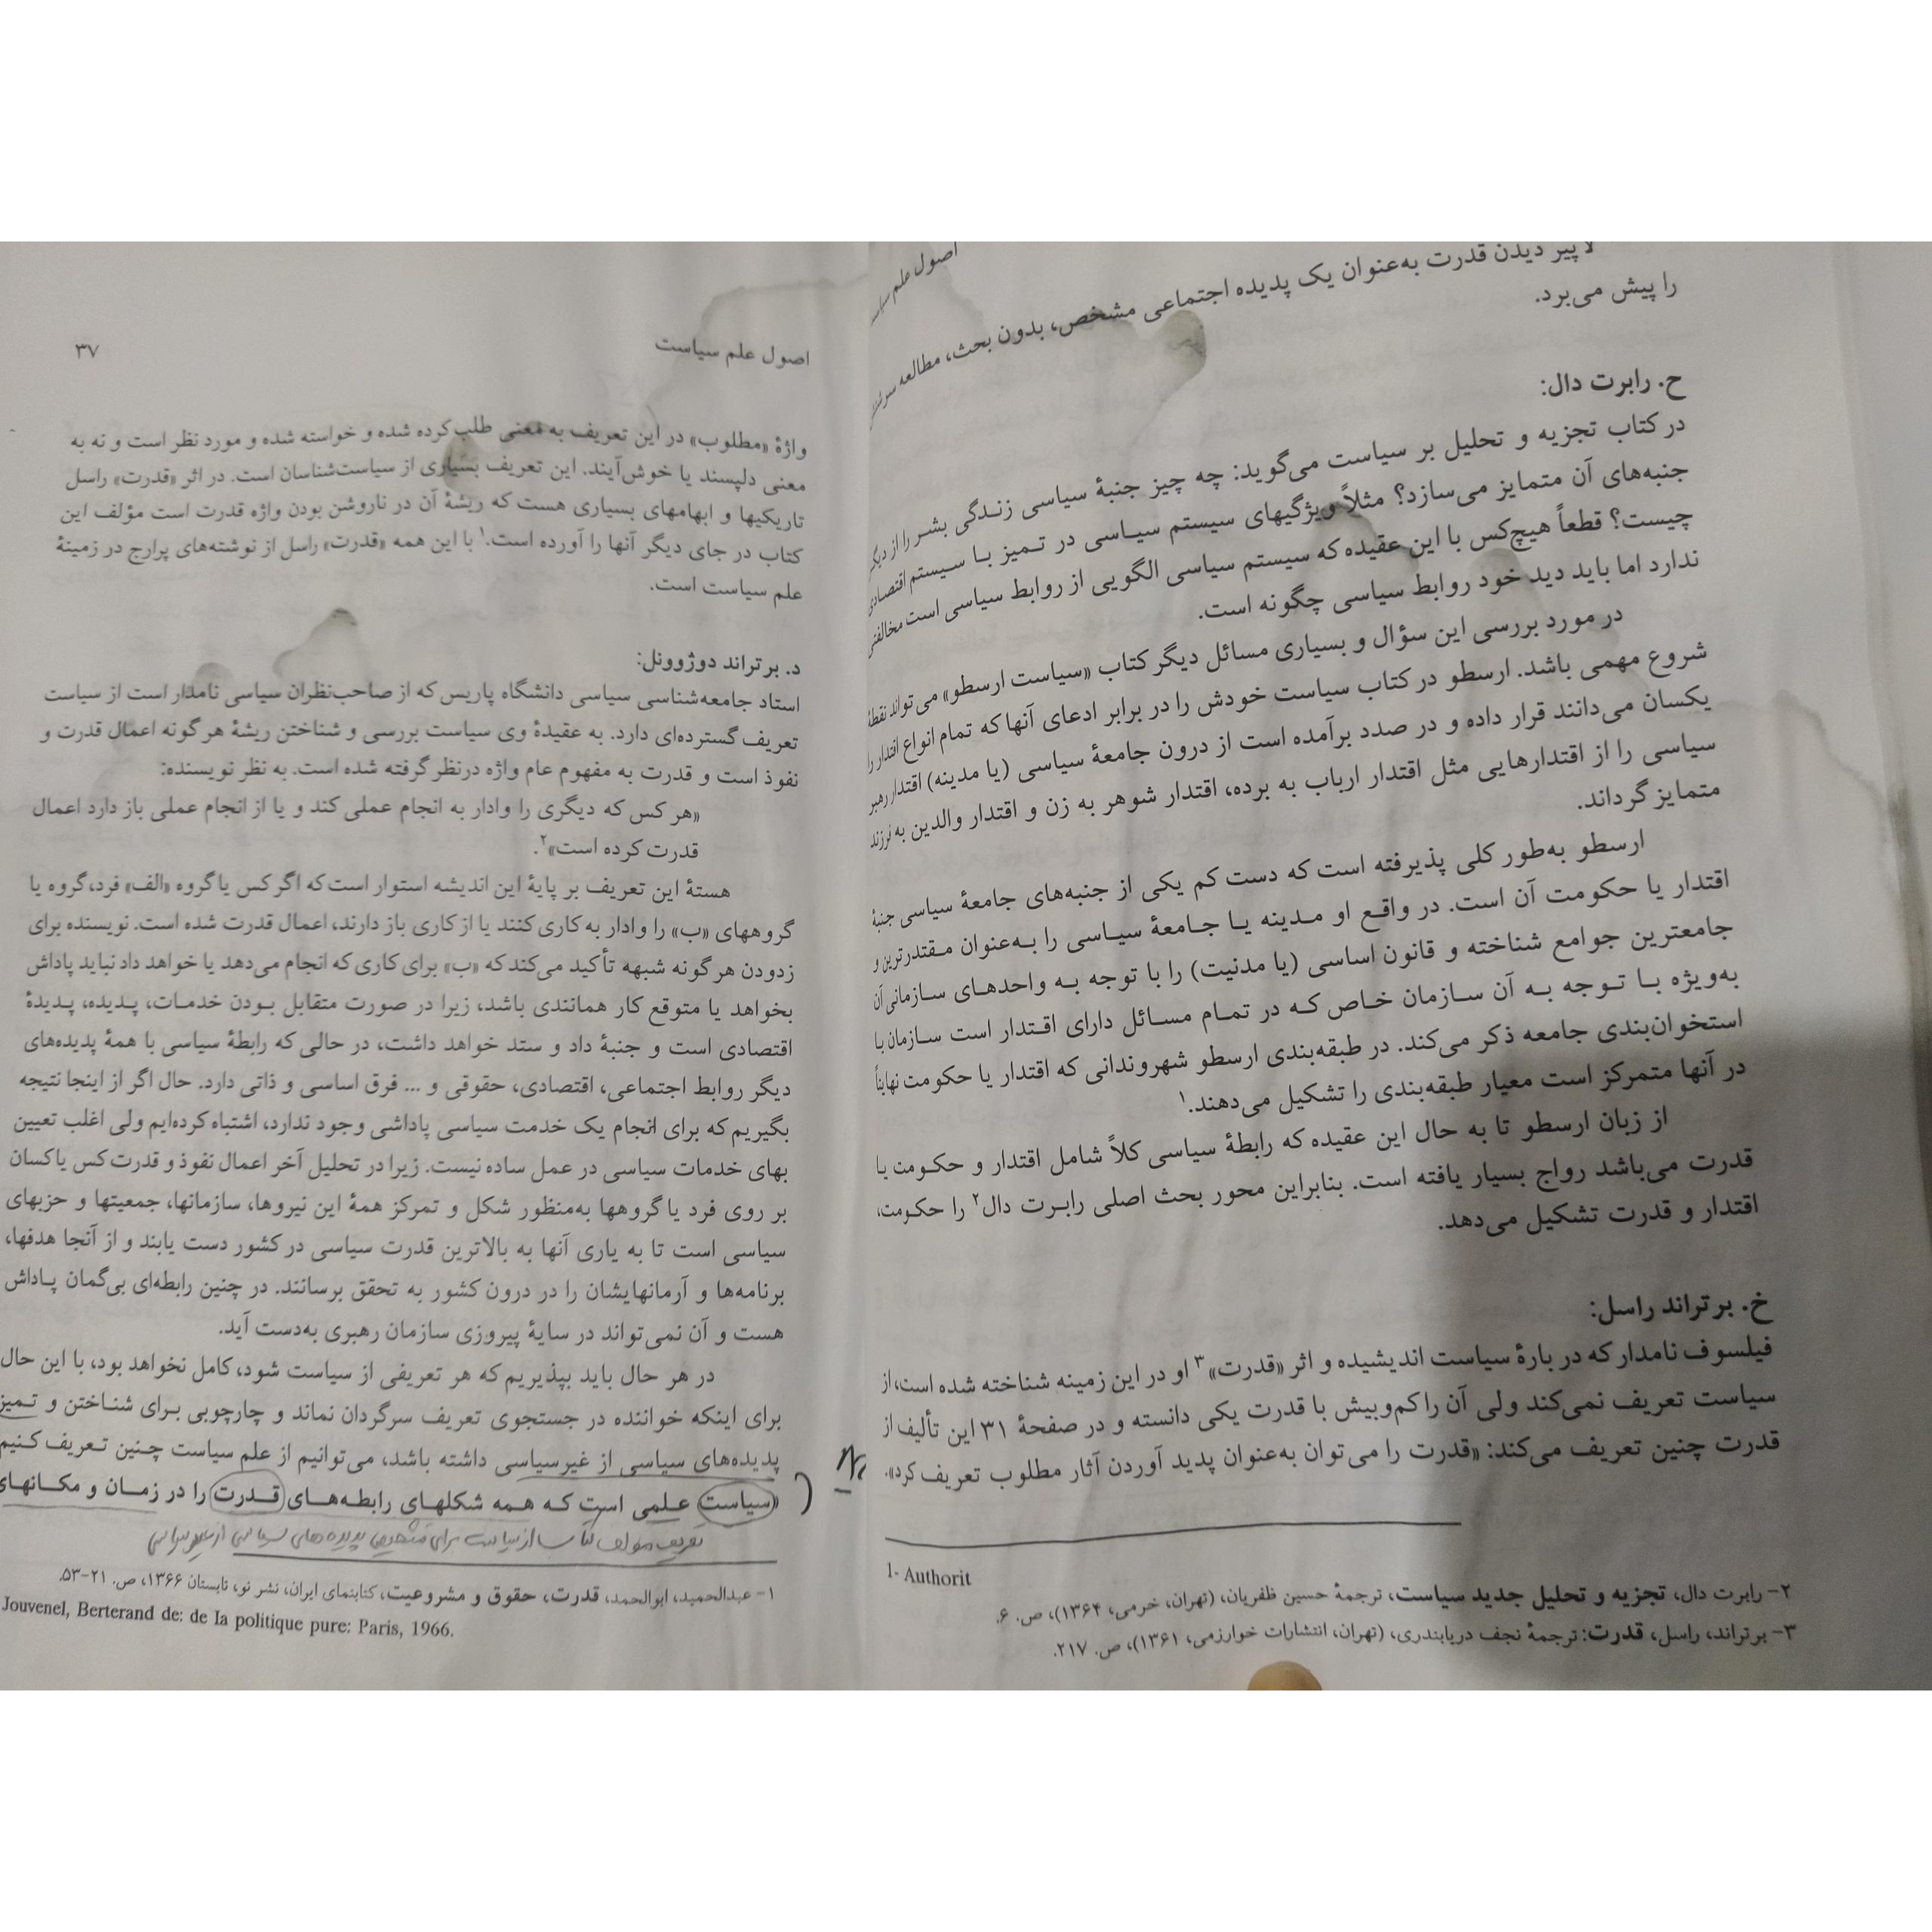 اصول علم
لاپیر دیدن قدرت به‌عنوان یک پدیده اجتماعی مشخص، بدون بحث، مطالعه
را پیش می‌برد.
ح. رابرت دال:
در کتاب تجزیه و تحلیل بر سیاست می‌گوید: چه چیز جنبهٔ سیاسی زندگی بشر را از دیگر
جنبه‌های آن متمایز می‌سازد؟ مثلاً ویژگیهای سیستم سیاسی در تمیز با سیستم اقتصادی
چیست؟ قطعاً هیچ‌کس با این عقیده که سیستم سیاسی الگویی از روابط سیاسی است مخالفتی
ندارد اما باید دید خود روابط سیاسی چگونه است.
در مورد بررسی این سؤال و بسیاری مسائل دیگر کتاب «سیاست ارسطو» می‌تواند نقطهٔ
شروع مهمی باشد. ارسطو در کتاب سیاست خودش را در برابر ادعای آنها که تمام انواع اقتدار را
یکسان می‌دانند قرار داده و در صدد برآمده است از درون جامعهٔ سیاسی (یا مدینه) اقتدار رهبر
سیاسی را از اقتدارهایی مثل اقتدار ارباب به برده، اقتدار شوهر به زن و اقتدار والدین به فرزند
متمایز گرداند.
ارسطو به‌طور کلی پذیرفته است که دست کم یکی از جنبه‌های جامعهٔ سیاسی جنبهٔ
اقتدار یا حکومت آن است. در واقع او مدینه یا جامعهٔ سیاسی را به‌عنوان مقتدرترین و
جامعترین جوامع شناخته و قانون اساسی (یا مدنیت) را با توجه به واحدهای سازمانی آن
به‌ویژه با توجه به آن سازمان خاص که در تمام مسائل دارای اقتدار است سازمان یا
استخوان‌بندی جامعه ذکر می‌کند. در طبقه‌بندی ارسطو شهروندانی که اقتدار یا حکومت نهایتاً
در آنها متمرکز است معیار طبقه‌بندی را تشکیل می‌دهند.۱
از زبان ارسطو تا به حال این عقیده که رابطهٔ سیاسی کلاً شامل اقتدار و حکومت یا
قدرت می‌باشد رواج بسیار یافته است. بنابراین محور بحث اصلی رابرت دال۲ را حکومت،
اقتدار و قدرت تشکیل می‌دهد.
خ. برتراند راسل:
فیلسوف نامدار که در بارهٔ سیاست اندیشیده و اثر «قدرت»۳ او در این زمینه شناخته شده است، از
سیاست تعریف نمی‌کند ولی آن را کم‌وبیش با قدرت یکی دانسته و در صفحهٔ ۳۱ این تألیف از
قدرت چنین تعریف می‌کند: «قدرت را می‌توان به‌عنوان پدید آوردن آثار مطلوب تعریف کرد».
1- Authorit
۲- رابرت دال، تجزیه و تحلیل جدید سیاست، ترجمهٔ حسین ظفریان، (تهران، خرمی، ۱۳۶۴)، ص. ۶.
۳- برتراند، راسل، قدرت: ترجمهٔ نجف دریابندری، (تهران، انتشارات خوارزمی، ۱۳۶۱)، ص. ۲۱۷.
اصول علم سیاست ۳۷
واژهٔ «مطلوب» در این تعریف به معنی طلب‌کرده شده و خواسته شده و مورد نظر است و نه به
معنی دلپسند یا خوش‌آیند. این تعریف بسیاری از سیاست‌شناسان است. در اثر «قدرت» راسل
تاریکیها و ابهامهای بسیاری هست که ریشهٔ آن در ناروشن بودن واژه قدرت است مؤلف این
کتاب در جای دیگر آنها را آورده است.۱ با این همه «قدرت» راسل از نوشته‌های پرارج در زمینهٔ
علم سیاست است.
د. برتراند دوژوونل:
استاد جامعه‌شناسی سیاسی دانشگاه پاریس که از صاحب‌نظران سیاسی نامدار است از سیاست
تعریف گسترده‌ای دارد. به عقیدهٔ وی سیاست بررسی و شناختن ریشهٔ هر گونه اعمال قدرت و
نفوذ است و قدرت به مفهوم عام واژه درنظر گرفته شده است. به نظر نویسنده:
«هر کس که دیگری را وادار به انجام عملی کند و یا از انجام عملی باز دارد اعمال
قدرت کرده است»۲.
هستهٔ این تعریف بر پایهٔ این اندیشه استوار است که اگر کس یا گروه «الف» فرد، گروه یا
گروههای «ب» را وادار به کاری کنند یا از کاری باز دارند، اعمال قدرت شده است. نویسنده برای
زدودن هر گونه شبهه تأکید می‌کند که «ب» برای کاری که انجام می‌دهد یا خواهد داد نباید پاداش
بخواهد یا متوقع کار همانندی باشد، زیرا در صورت متقابل بودن خدمات، پدیده، پدیدهٔ
اقتصادی است و جنبهٔ داد و ستد خواهد داشت، در حالی که رابطهٔ سیاسی با همهٔ پدیده‌های
دیگر روابط اجتماعی، اقتصادی، حقوقی و ... فرق اساسی و ذاتی دارد. حال اگر از اینجا نتیجه
بگیریم که برای انجام یک خدمت سیاسی پاداشی وجود ندارد، اشتباه کرده‌ایم ولی اغلب تعیین
بهای خدمات سیاسی در عمل ساده نیست. زیرا در تحلیل آخر اعمال نفوذ و قدرت کس یا کسان
بر روی فرد یا گروهها به‌منظور شکل و تمرکز همهٔ این نیروها، سازمانها، جمعیتها و حزبهای
سیاسی است تا به یاری آنها به بالاترین قدرت سیاسی در کشور دست یابند و از آنجا هدفها،
برنامه‌ها و آرمانهایشان را در درون کشور به تحقق برسانند. در چنین رابطه‌ای بی‌گمان پاداش
هست و آن نمی‌تواند در سایهٔ پیروزی سازمان رهبری به‌دست آید.
در هر حال باید بپذیریم که هر تعریفی از سیاست شود، کامل نخواهد بود، با این حال
برای اینکه خواننده در جستجوی تعریف سرگردان نماند و چارچوبی برای شناختن و تمیز
پدیده‌های سیاسی از غیرسیاسی داشته باشد، می‌توانیم از علم سیاست چنین تعریف کنیم
«سیاست علمی است که همه شکلهای رابطه‌های قدرت را در زمان و مکانهای
تعریف مولف کتاب از سیاست برای تشخیص پدیده‌های سیاسی از غیر سیاسی
۱- عبدالحمید، ابوالحمد، قدرت، حقوق و مشروعیت، کتابنمای ایران، نشر نو، تابستان ۱۳۶۶، ص. ۲۱-۵۳.
Jouvenel, Berterand de: de Ia politique pure: Paris, 1966.